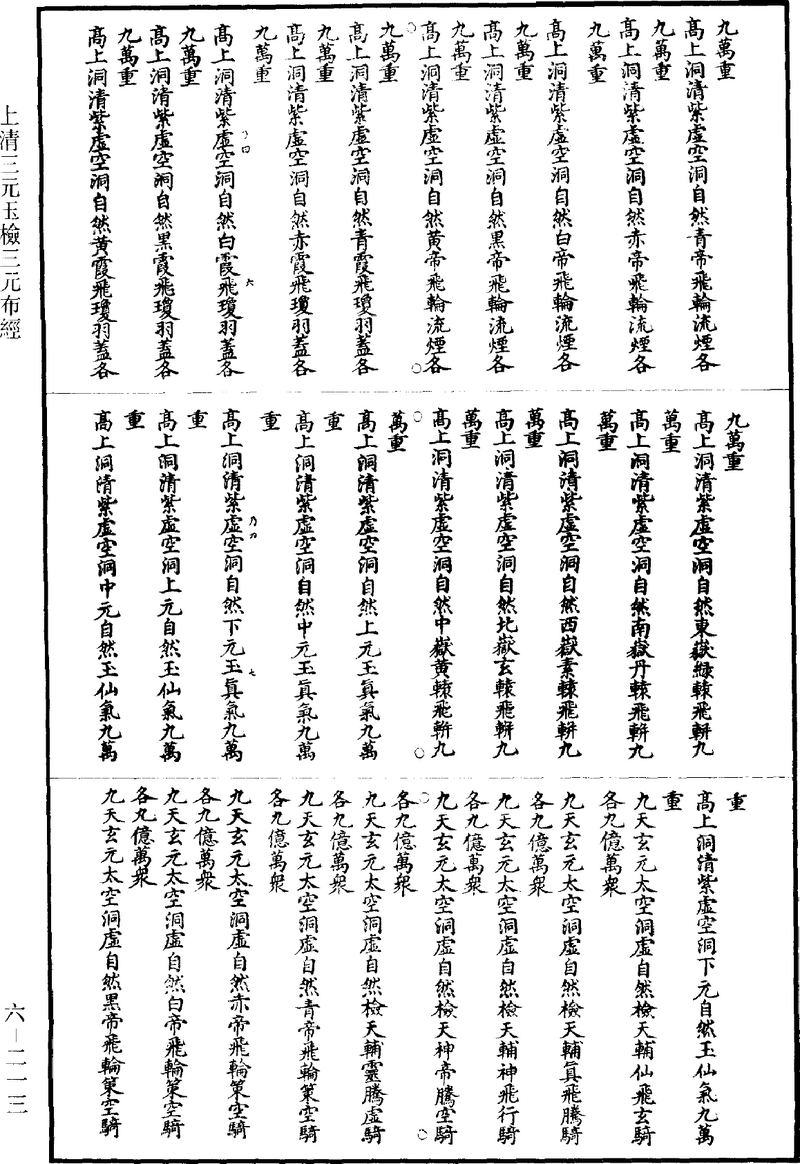 九萬重
髙上洞清紫虛空洞自然青帝飛輪流煙各
九萬重
髙上洞清紫虛空洞自然赤帝飛輪流煙各
九萬重
髙上洞清紫虛空洞自然白帝飛輪流煙各
九萬重
髙上洞清紫虛空洞自然黑帝飛輪流煙各
九萬重
髙上洞清紫虛空洞自然黃帝飛輪流煙各
九萬重
髙上洞清紫虛空洞自然青霞飛瓊羽蓋各
九萬重
髙上洞清紫虛空洞自然赤霞飛瓊羽蓋各
九萬重
髙上洞清紫虛空洞自然白霞飛瓊羽蓋各
九萬重
髙上洞清紫虛空洞自然黑霞飛瓊羽蓋各
九萬重
髙上洞清紫虛空洞自然黃霞飛瓊羽蓋各
九萬重
髙上洞清紫虛空洞自然東嶽綠轅飛軿九
萬重
髙上洞清紫虛空洞自然南嶽丹轅飛軿九
萬重
髙上洞清紫虛空洞自然西嶽素轅飛軿九
萬重
髙上洞清紫虛空洞自然北嶽玄轅飛軿九
萬重
髙上洞清紫虛空洞自然中嶽黃轅飛軿九
萬重
髙上洞清紫虛空洞自然上元玉真氣九萬
重
髙上洞清紫虛空洞自然中元玉真氣九萬
重
髙上洞清紫虛空洞自然下元玉真氣九萬
重
髙上洞清紫虛空洞上元自然玉仙氣九萬
重
髙上洞清紫虛空洞中元自然玉仙氣九萬
重
髙上洞清紫虛空洞下元自然玉仙氣九萬
重
九天玄元太空洞虛自然檢天輔仙飛玄騎
各九億萬衆
九天玄元太空洞虛自然檢天輔真飛騰騎
各九億萬衆
九天玄元太空洞虛自然檢天輔神飛行騎
各九億萬衆
九天玄元太空洞虛自然檢天神帝騰空騎
各九億萬衆
九天玄元太空洞虛自然檢天輔靈騰虛騎
各九億萬衆
九天玄元太空洞虛自然青帝飛輪策空騎
各九億萬衆
九天玄元太空洞虛自然赤帝飛輪策空騎
各九億萬衆
九天玄元太空洞虛自然白帝飛輪策空騎
各九億萬衆
九天玄元太空洞虛自然黑帝飛輪策空騎
上清三元玉檢三元布經
六－二一三